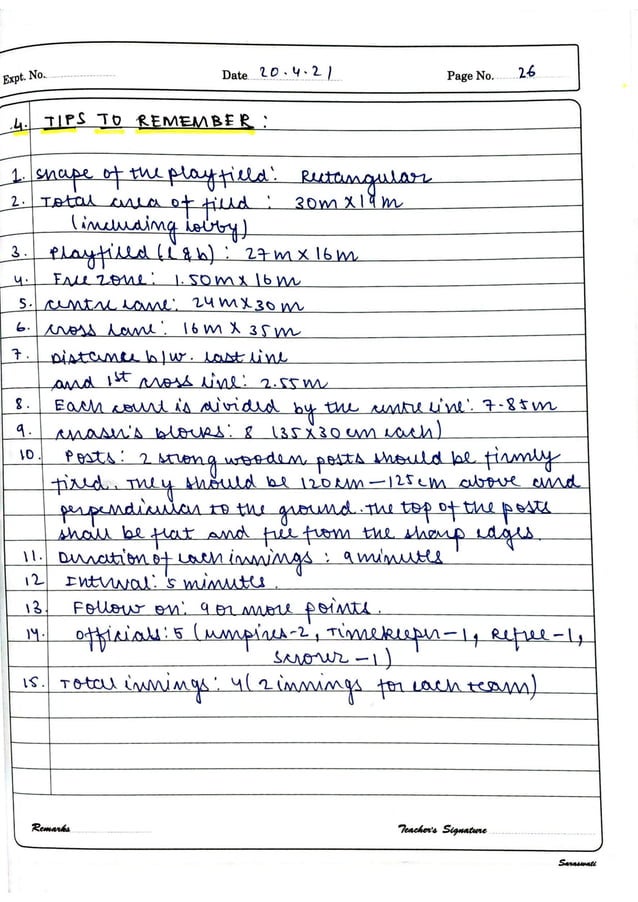 Expt. No. Date 20.4.21 Page No. 26
4. TIPS TO REMEMBER :
1. Shape of the playfield: Rectangular
2. Total area of field : 30m X 19m
(including lobby)
3. Playfield (l & b) : 27m X 16m
4. Free zone: 1.50m X 16m
5. centre lane: 24m X 30m
6. cross lane: 16m X 35m
7. Distance b/w. last line
and 1st cross line: 2.55m
8. Each court is divided by the centre line: 7.85m
9. chaser's blocks: 8 (35X30cm each)
10. Posts: 2 strong wooden posts should be firmly
fixed. They should be 120cm-125cm above and
perpendicular to the ground. The top of the posts
shall be flat and free from the sharp edges.
11. Duration of each innings : 9 minutes
12 Interval: 5 minutes.
13. Follow on: 9 or more points.
14. Officials: 5 (umpires-2, Timekeeper-1, Refree-1,
Scrorer-1)
15. Total innings: 4 (2 innings for each team)
Remarks Teacher's Signature
Saraswati